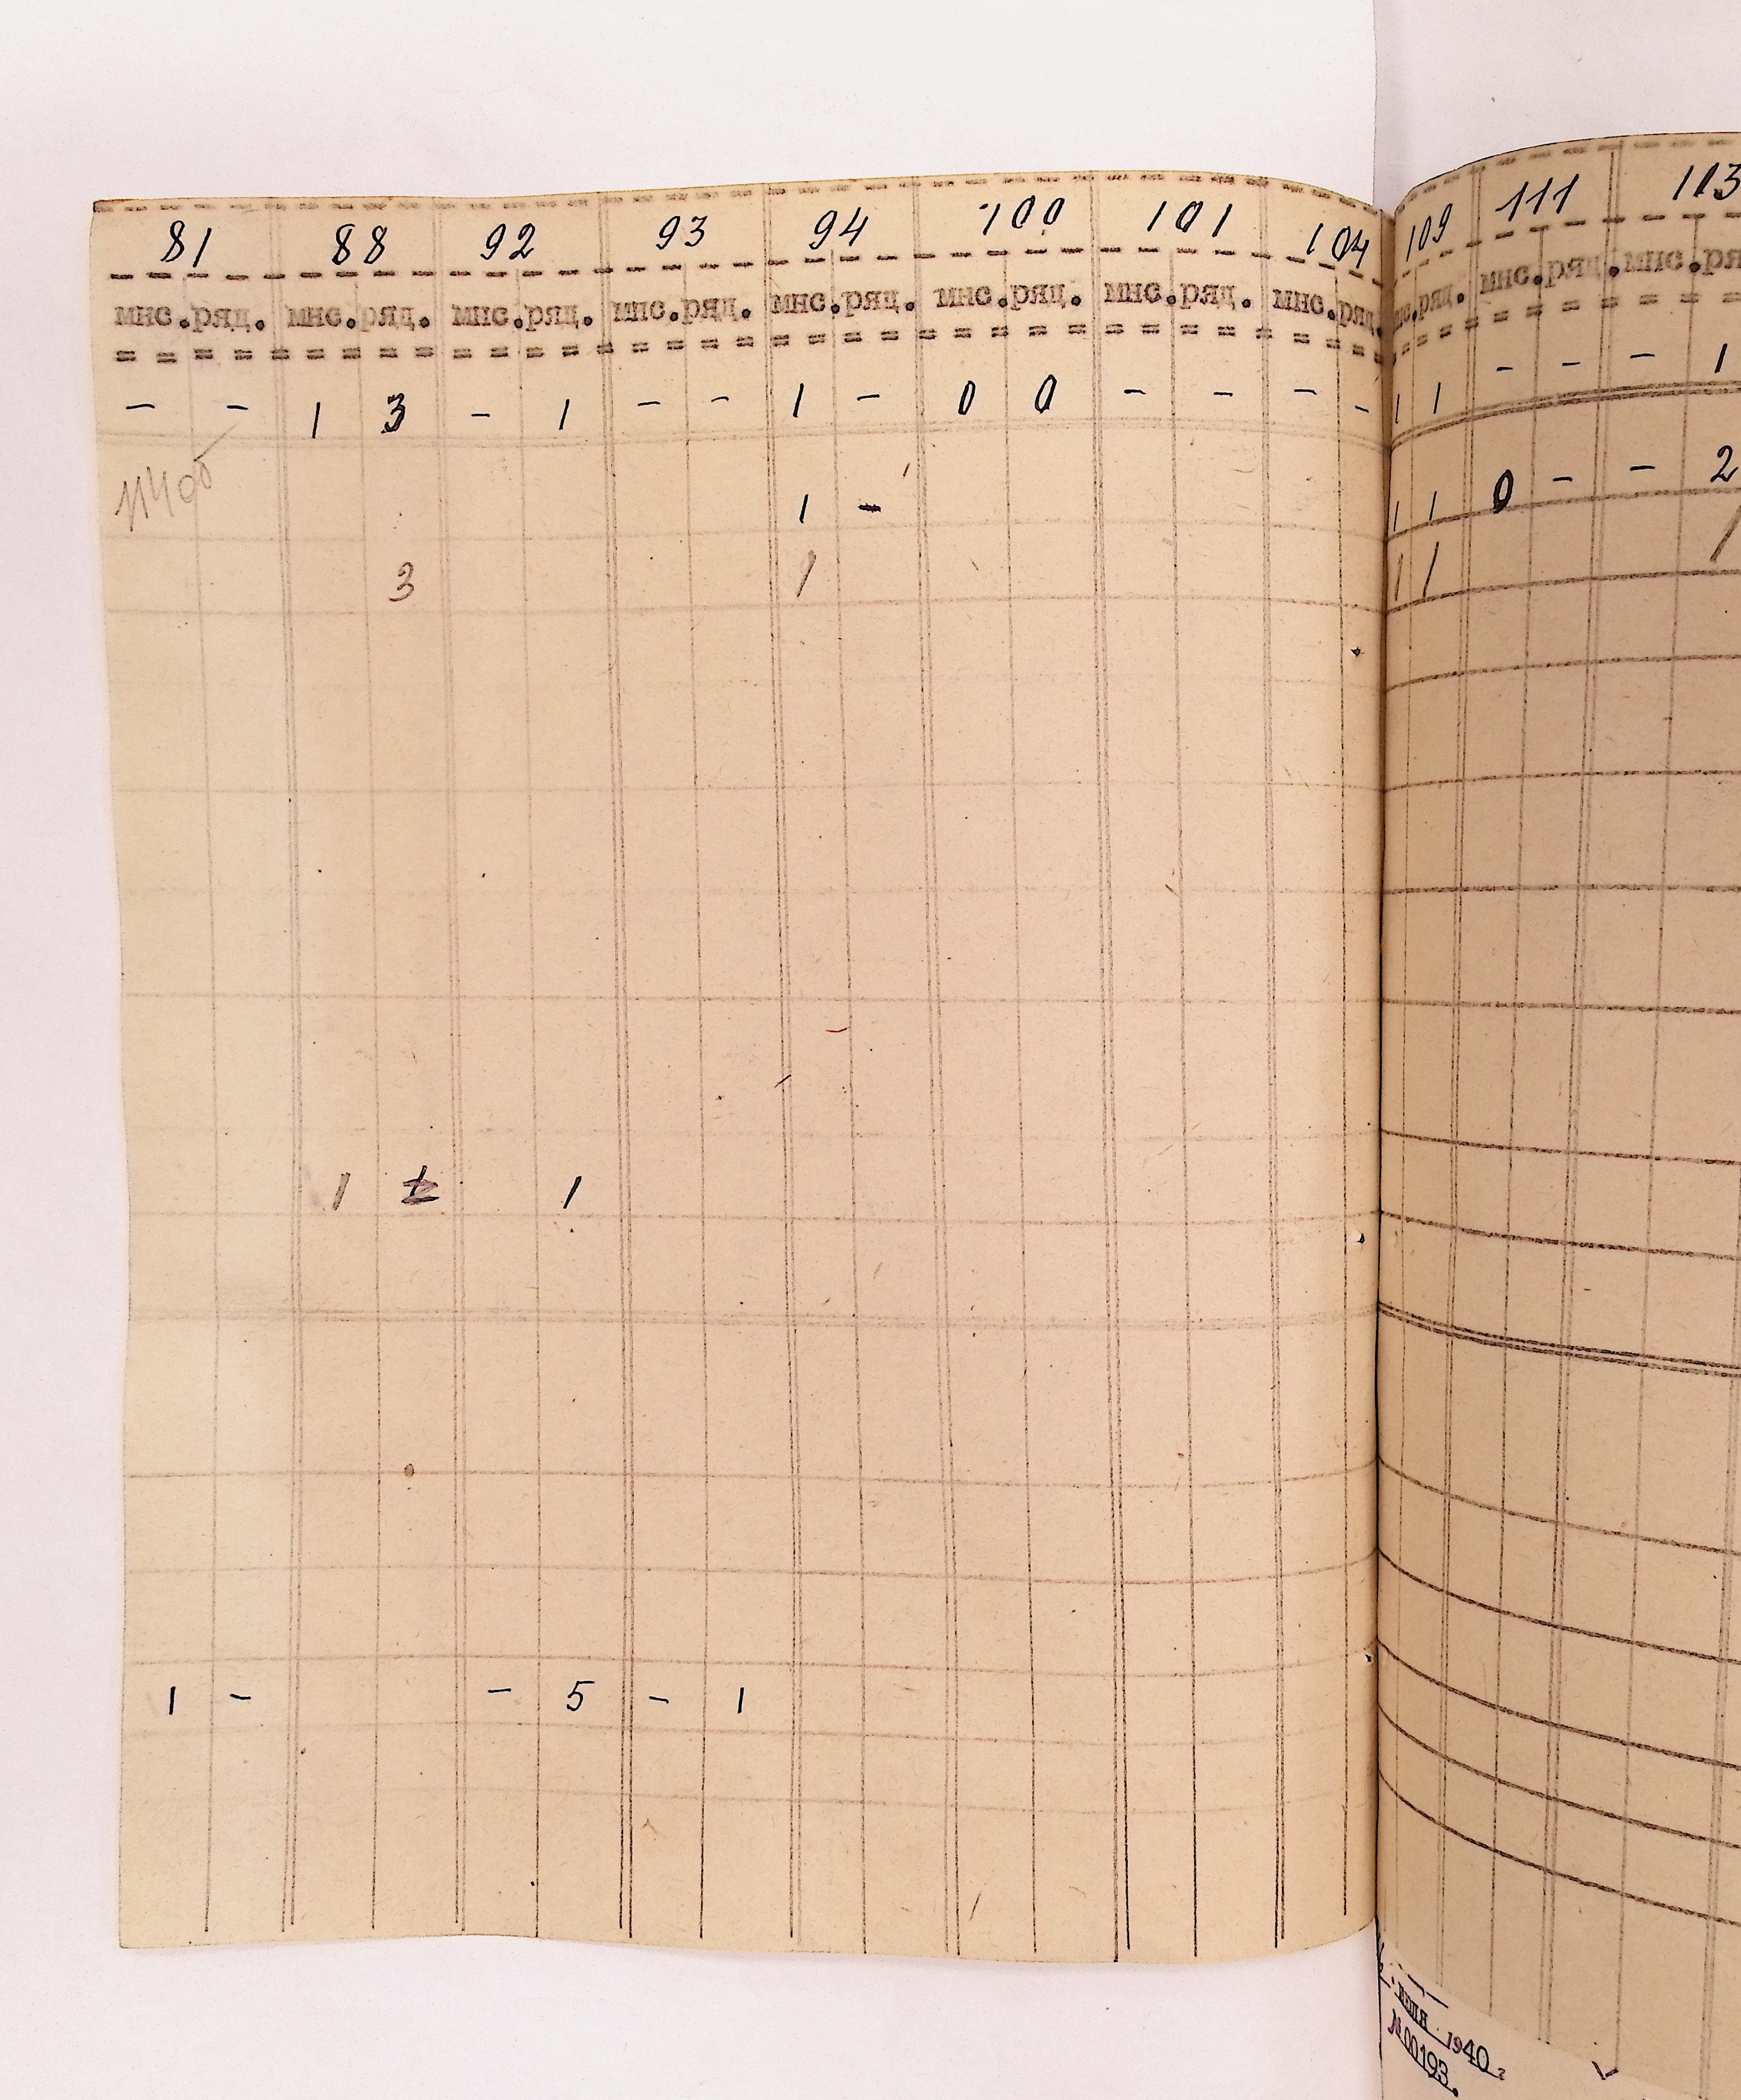 81 88 92 93 94 100 101 104 109 111 113
мнс.ряд. мнс.ряд. мнс.ряд. мнс.ряд. мнс.ряд. мнс.ряд. мнс.ряд. мнс.ряд. нс.ряд. мнс.ряд. мнс.ря
- - 1 3 - 1 - - 1 - 0 0 - - - - 1 1 - - - 1
1 - 1 1 0 - - 2
3 1 1 1 1
1 1
1 - - 5 - 1
1940
№00193.